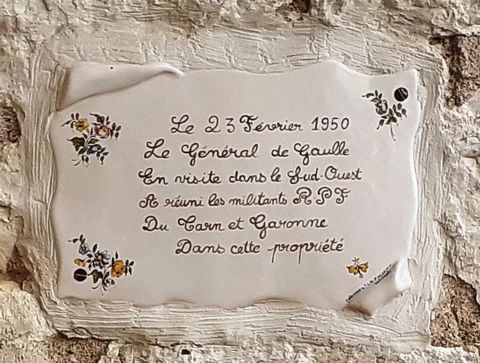 Le 23 Février 1950
Le Général de Gaulle
En visite dans le Sud-Ouest
A réuni les militants R P F
Du Tarn et Garonne
Dans cette propriété